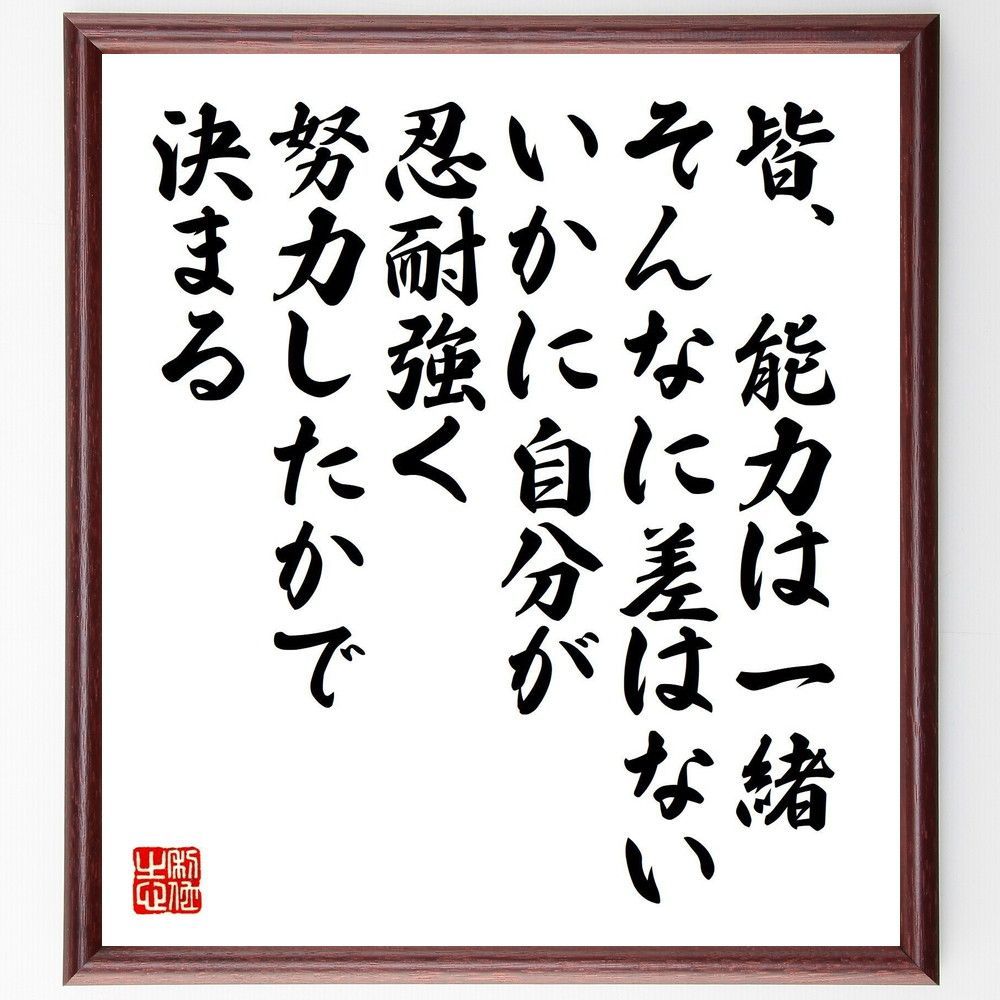 皆、能力は一緒
そんなに差はない
いかに自分が
忍耐強く
努力したかで
決まる